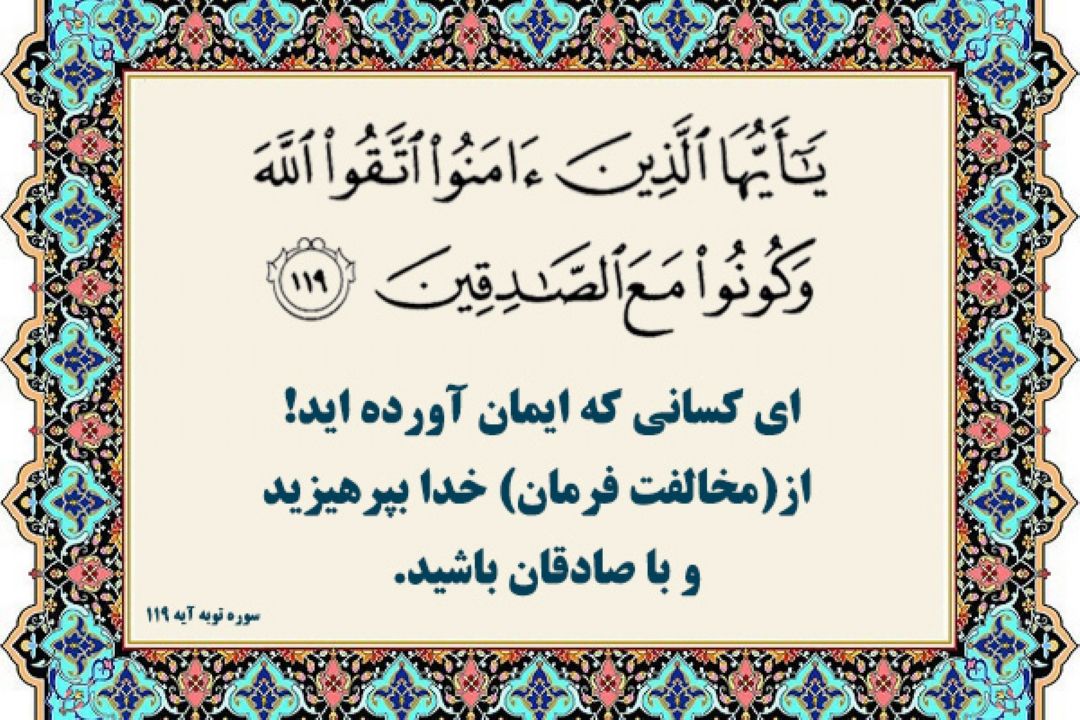 يَـٰٓأَيُّهَا ٱلَّذِينَ ءَامَنُوا۟ ٱتَّقُوا۟ ٱللَّهَ
وَكُونُوا۟ مَعَ ٱلصَّـٰدِقِينَ ١١٩
ای کسانی که ایمان آورده اید!
از(مخالفت فرمان) خدا بپرهیزید
و با صادقان باشید.
سوره توبه آیه ۱۱۹